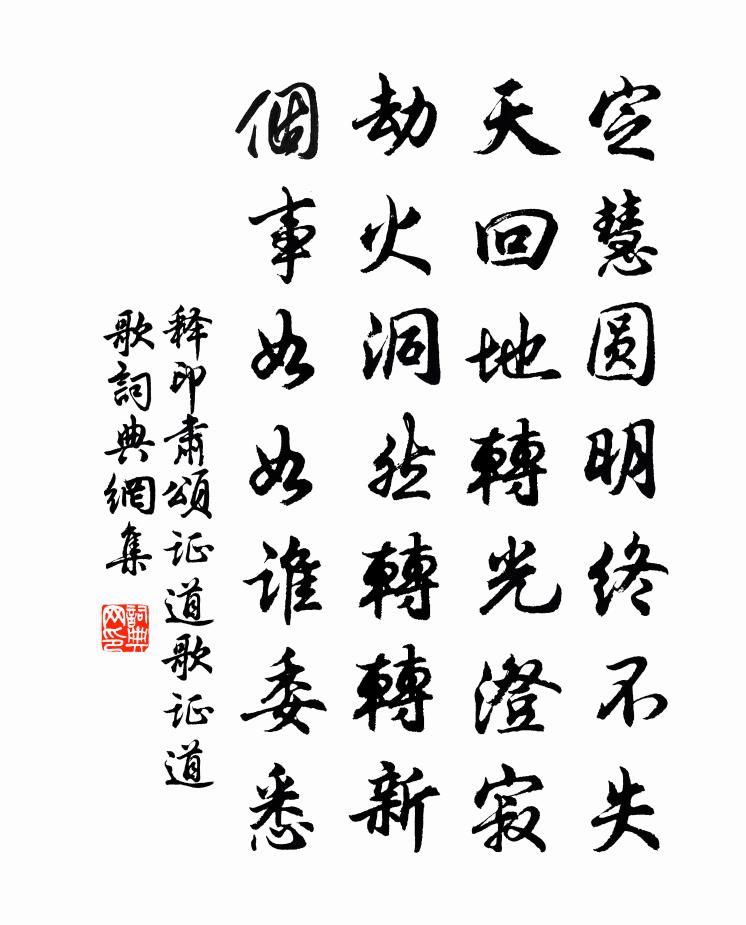 定慧圆明终不失
天回地轉光澄寂
劫火洞然轉轉新
個事如如谁委悉
释印肃頌证道歌证道
歌詞典網集
詞典网印